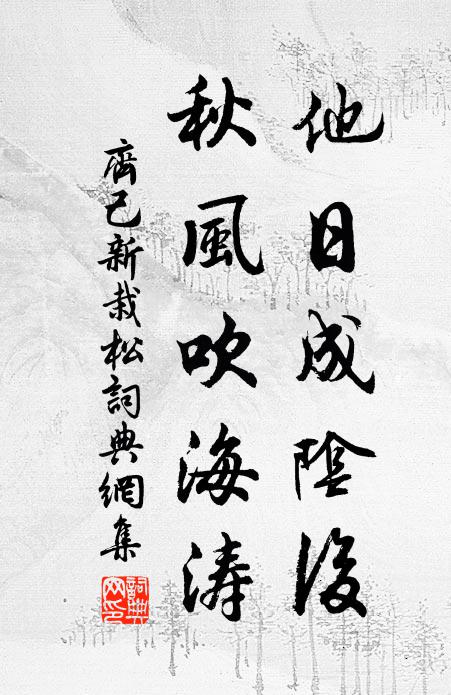 他日成陰後
秋風吹海濤
齊己新栽松詞典網集